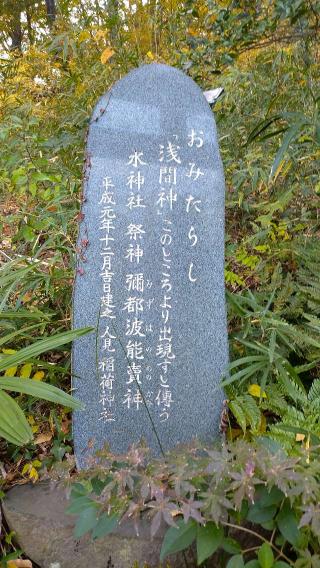 おみたらし
「浅間神」このところより出現すと傳う
水神社 祭神 彌都波能賣神
みずはのめのかみ
平成元年十二月吉日建之 人見 稲荷神社